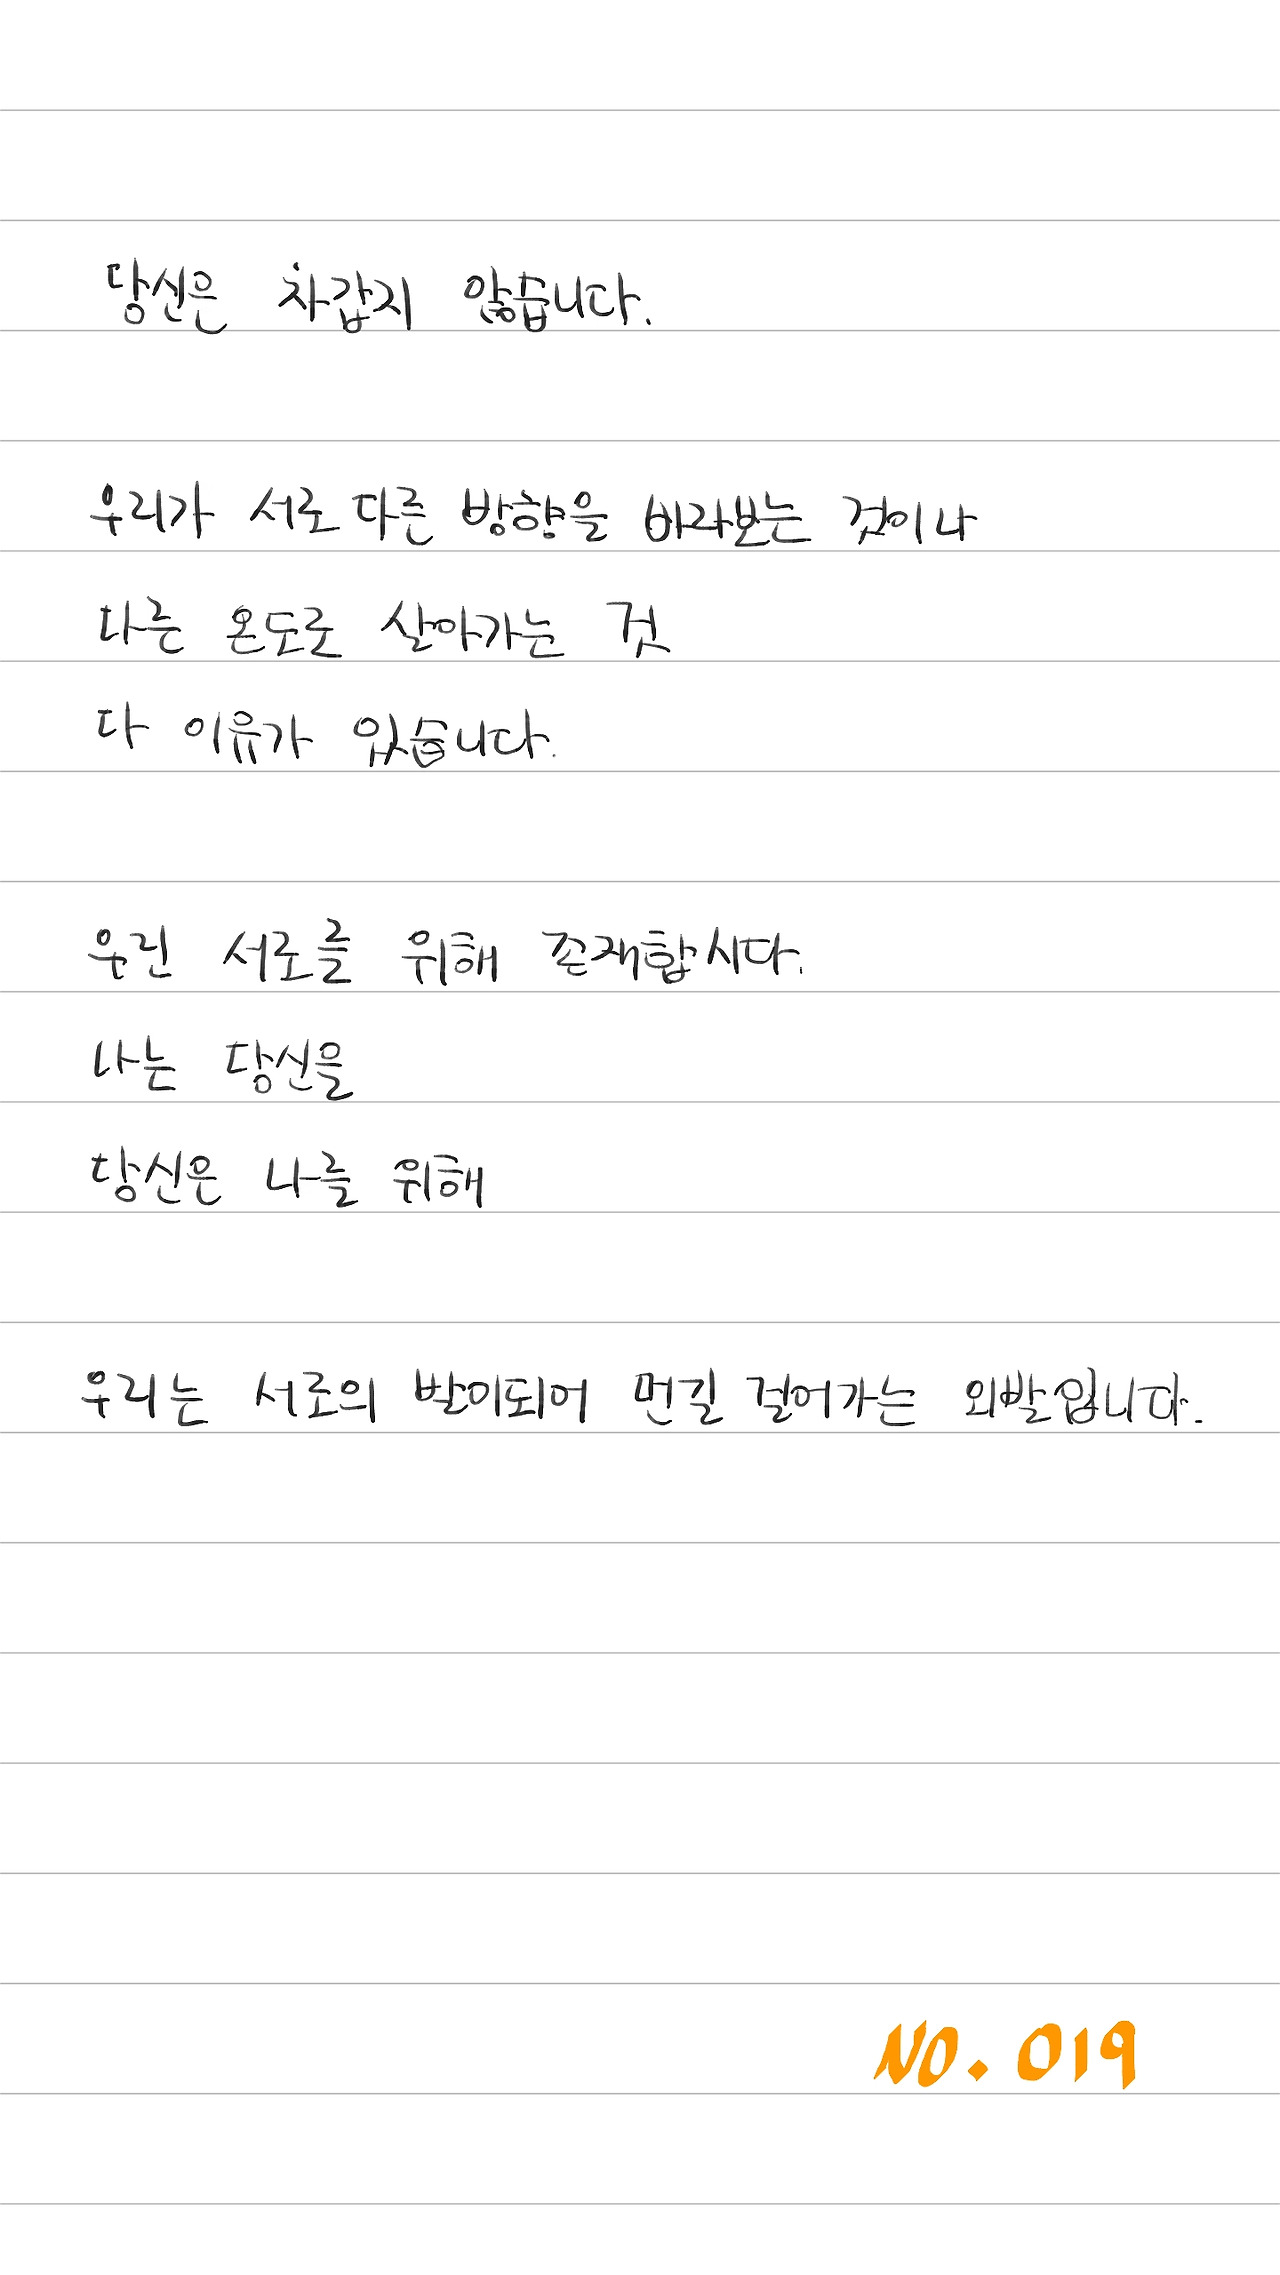 당신은 차갑지 않습니다.
우리가 서로 다른 방향을 바라보는 것이나
다른 온도로 살아가는 것
다 이유가 있습니다.
우린 서로를 위해 존재합시다.
나는 당신을
당신은 나를 위해
우리는 서로의 발이되어 먼길 걸어가는 외발입니다.
NO. 019